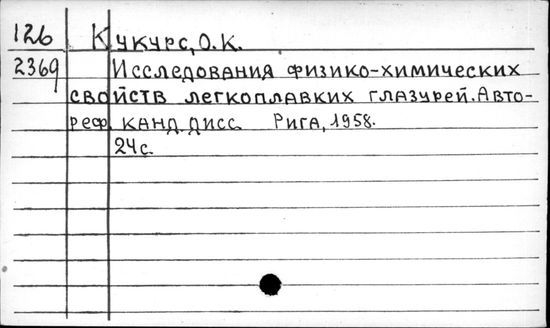 126 Кукурс, О.К.
2369 Исследования физико-химических
свойств легкоплавких глазурей. Авто-
реф. канд. дисс. Рига, 1958.
24 с.